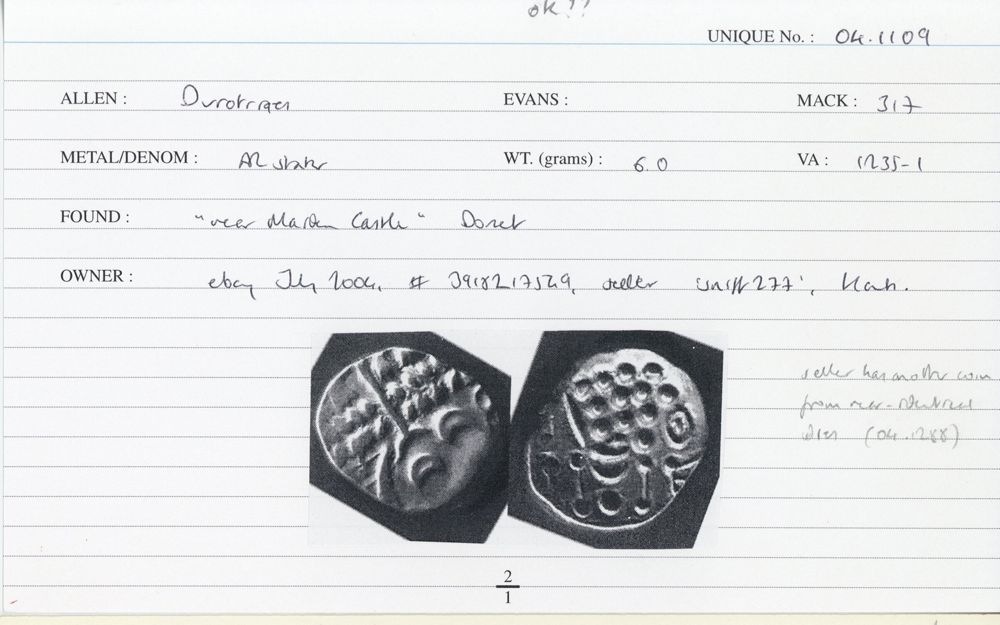 ok!!
UNIQUE No. : 04.1109
ALLEN : Durotriges EVANS : MACK : 317
METAL/DENOM : AR stater WT. (grams) : 6.0 VA : 1235-1
FOUND : "near Maiden Castle" Dorset
OWNER : ebay July 2004, # 3918217529, seller 'swift277', Hants.
seller has another coin
from near-identical
dies (04.1288)
2
1